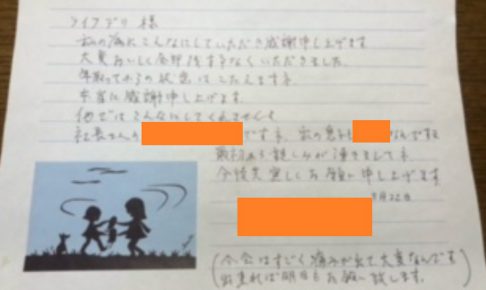 ライフデリ 様
私の為にこんなにしていただき感謝申し上げます
大変おいしく全部残すなくいただきました。
年取ってからの状態はこたえますネ。
本当に感謝申し上げます。
他ではこんなにしてくれません
社長さんの ですネ、私の息子も なんですョ
最初から親しみが湧きましてネ
今後共宜しくお願い申し上げます
月22日
(今公はすごく痛みが出て大変なんです
出来れば明日もお願い致します。)